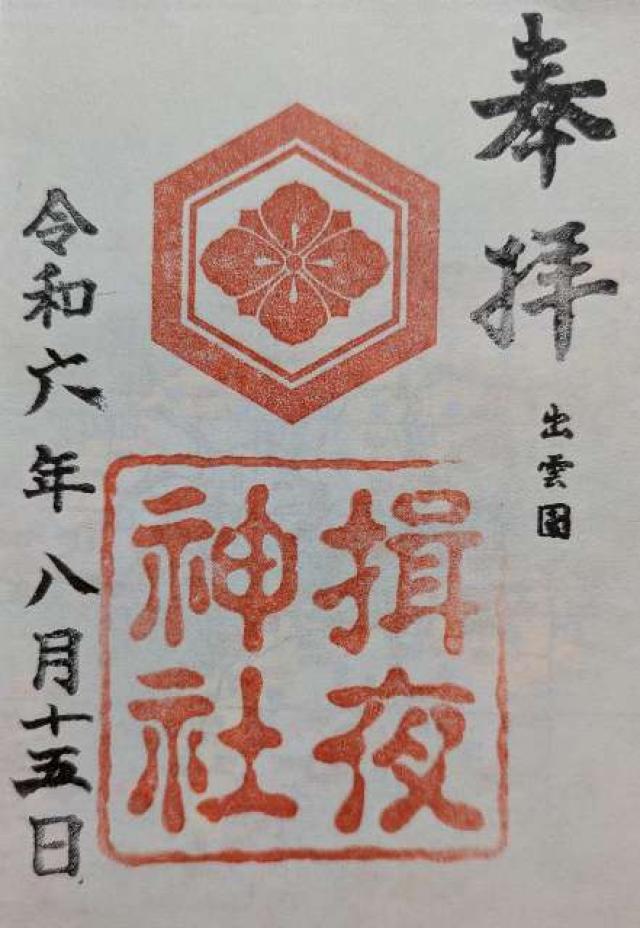 奉拝
出雲國
揖夜
神社
令和六年八月十五日